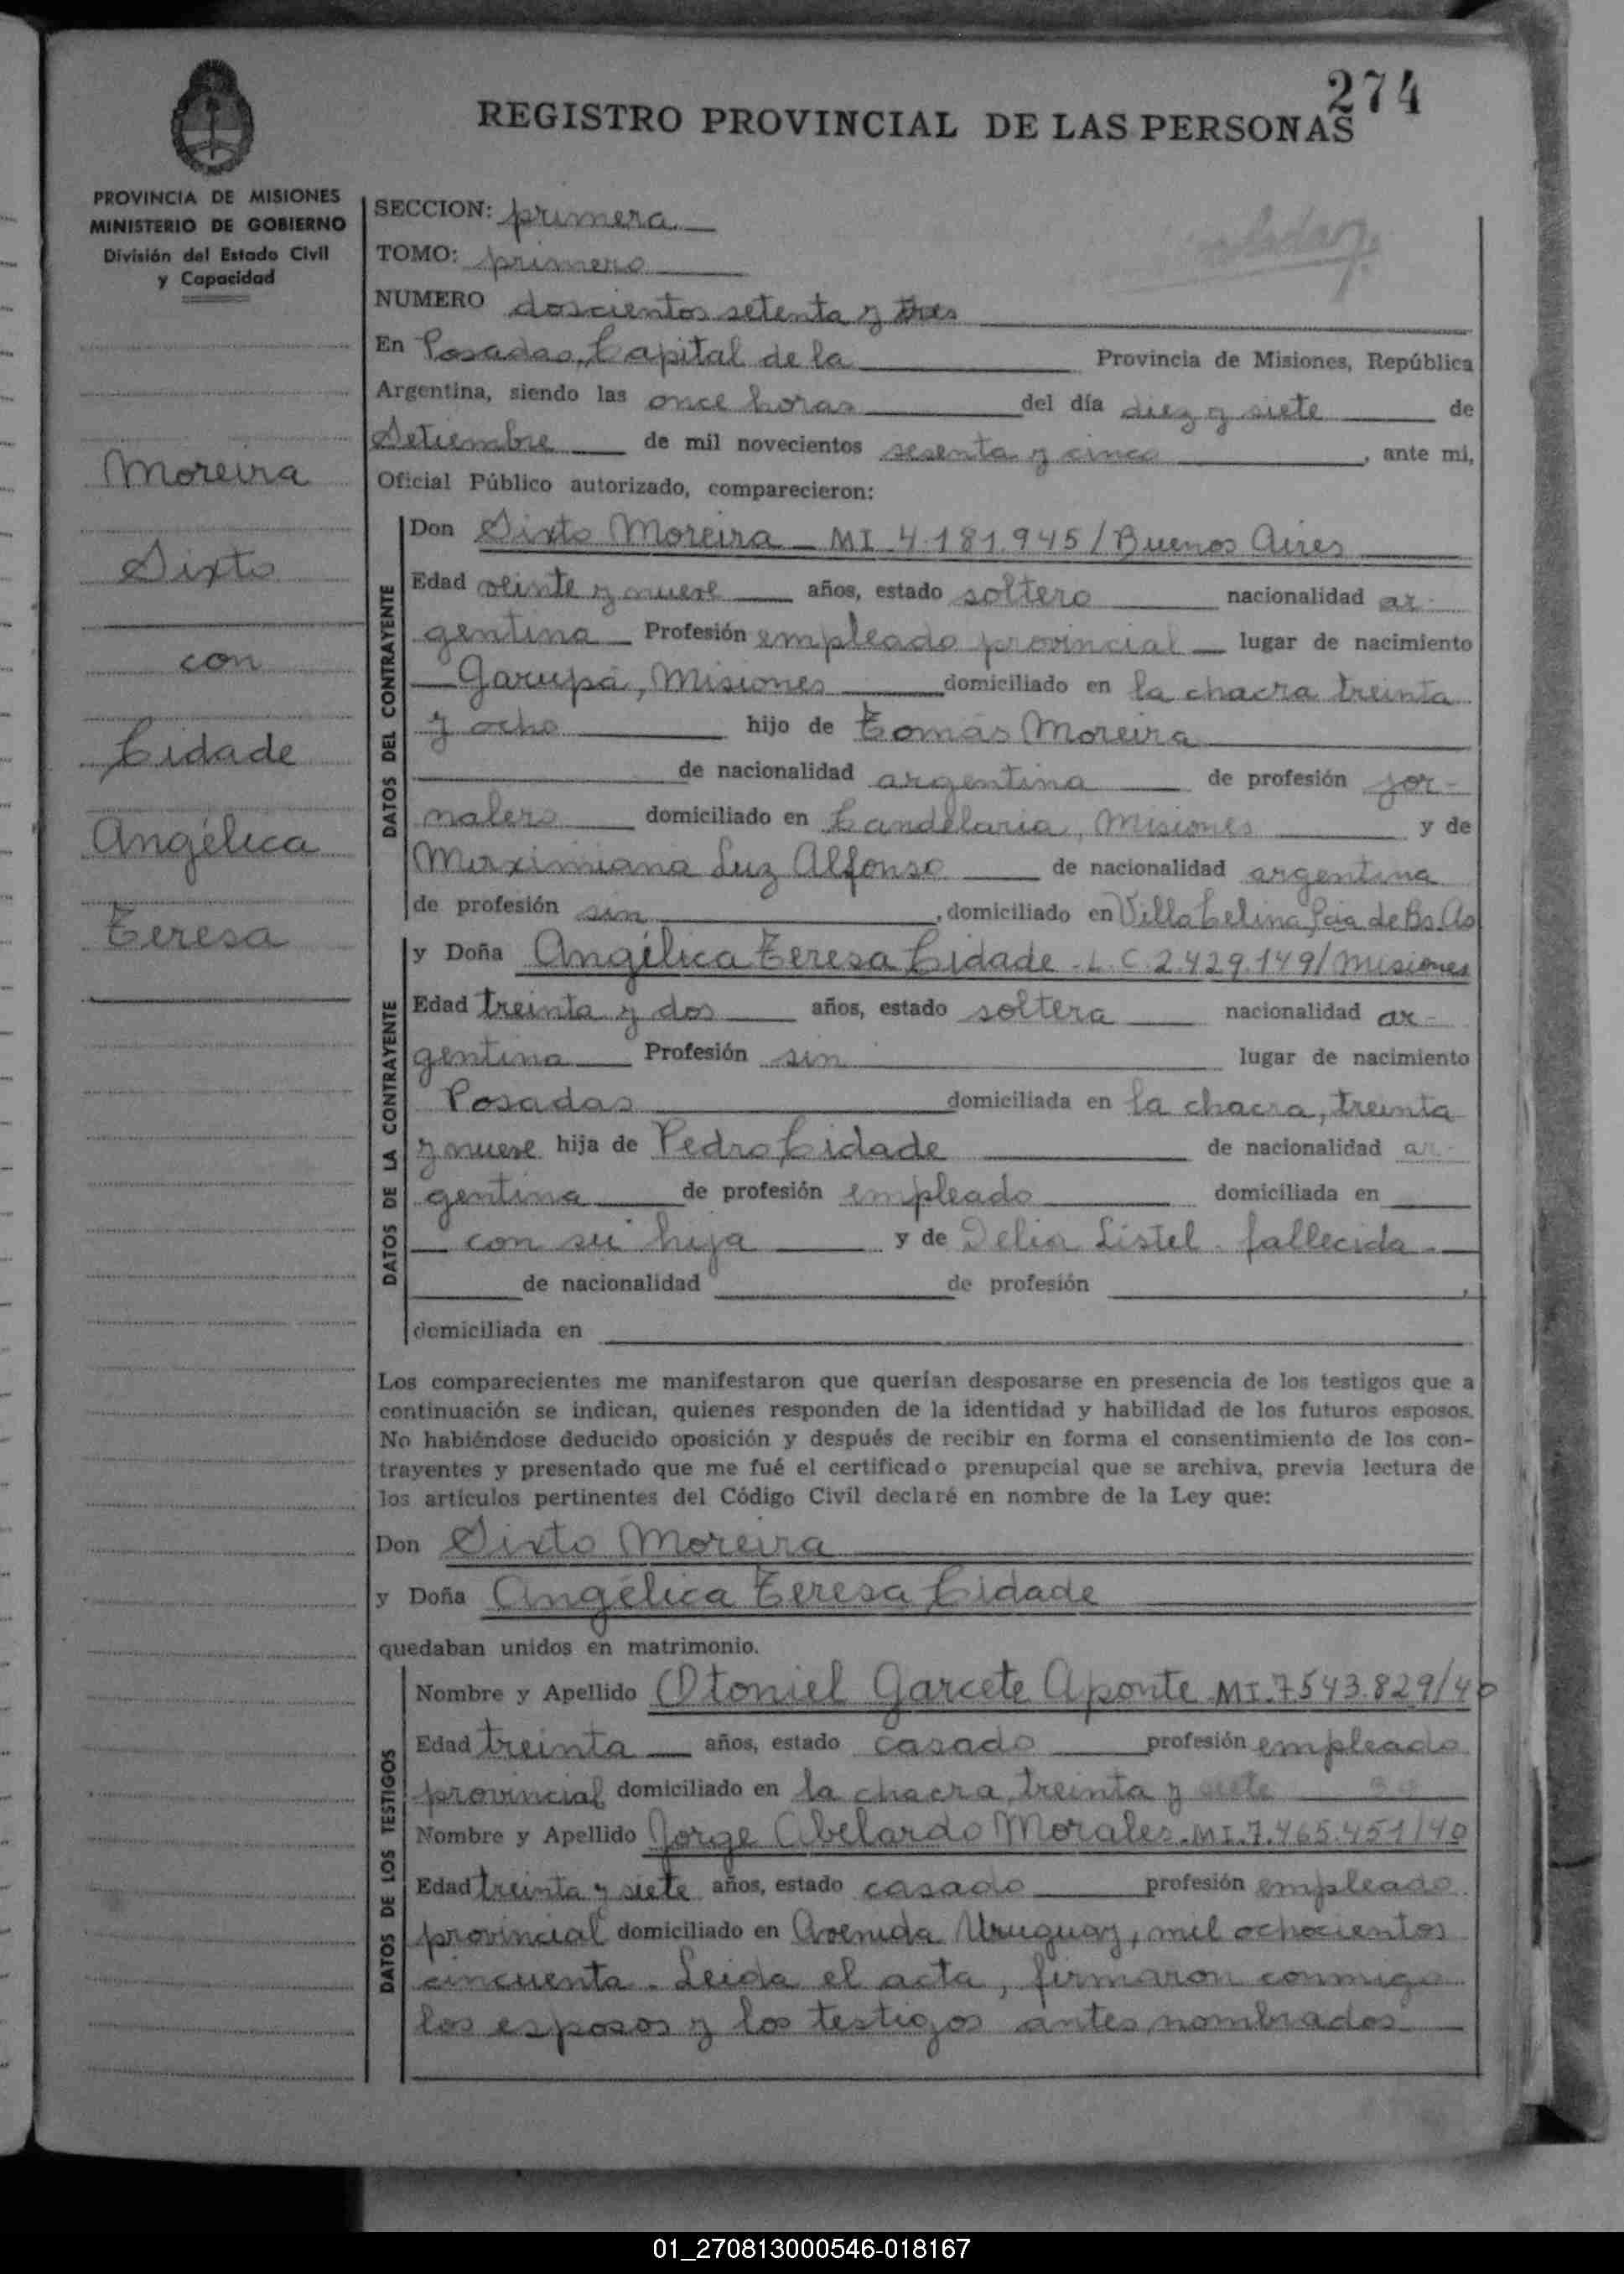 274
REGISTRO PROVINCIAL DE LAS PERSONAS
PROVINCIA DE MISIONES
MINISTERIO DE GOBIERNO
División del Estado Civil
y Capacidad
Moreira
Sixto
con
Cidade
Angélica
Teresa
SECCION: primera
TOMO: primero
NUMERO doscientos setenta y tres
En Posadas, Capital de la Provincia de Misiones, República
Argentina, siendo las once horas del día diez y siete de
Setiembre de mil novecientos sesenta y cinco, ante mi,
Oficial Público autorizado, comparecieron:
DATOS DEL CONTRAYENTE
Don Sixto Moreira - MI. 4.181.945/Buenos Aires
Edad veinte y nueve años, estado soltero nacionalidad ar-
gentina Profesión empleado provincial lugar de nacimiento
Garupá, Misiones domiciliado en la chacra treinta
y ocho hijo de Tomás Moreira
de nacionalidad argentina de profesión jor-
nalero domiciliado en Candelaria, Misiones y de
Maximiana Luz Alfonso de nacionalidad argentina
de profesión sin, domiciliado en Villa Celina, Pcia de Bs. As
DATOS DE LA CONTRAYENTE
y Doña Angélica Teresa Cidade - L. C. 2.429.149/Misiones
Edad treinta y dos años, estado soltera nacionalidad ar-
gentina Profesión sin lugar de nacimiento
Posadas domiciliada en la chacra, treinta
y nueve hija de Pedro Cidade de nacionalidad ar-
gentina de profesión empleado domiciliada en
con su hija y de Delia Listel. fallecida.
de nacionalidad de profesión ,
domiciliada en
Los comparecientes me manifestaron que querían desposarse en presencia de los testigos que a
continuación se indican, quienes responden de la identidad y habilidad de los futuros esposos.
No habiéndose deducido oposición y después de recibir en forma el consentimiento de los con-
trayentes y presentado que me fué el certificado prenupcial que se archiva, previa lectura de
los artículos pertinentes del Código Civil declaré en nombre de la Ley que:
Don Sixto Moreira
y Doña Angélica Teresa Cidade
quedaban unidos en matrimonio.
DATOS DE LOS TESTIGOS
Nombre y Apellido Otoniel Garcete Aponte MI. 7.543.829/40
Edad treinta años, estado casado profesión empleado
provincial domiciliado en la chacra treinta y siete
Nombre y Apellido Jorge Abelardo Morales. MI. 7.465.451/40
Edad treinta y siete años, estado casado profesión empleado
provincial domiciliado en Avenida Uruguay, mil ochocientos
cincuenta. Leida el acta, firmaron conmigo
los esposos y los testigos antes nombrados
01_270813000546-018167